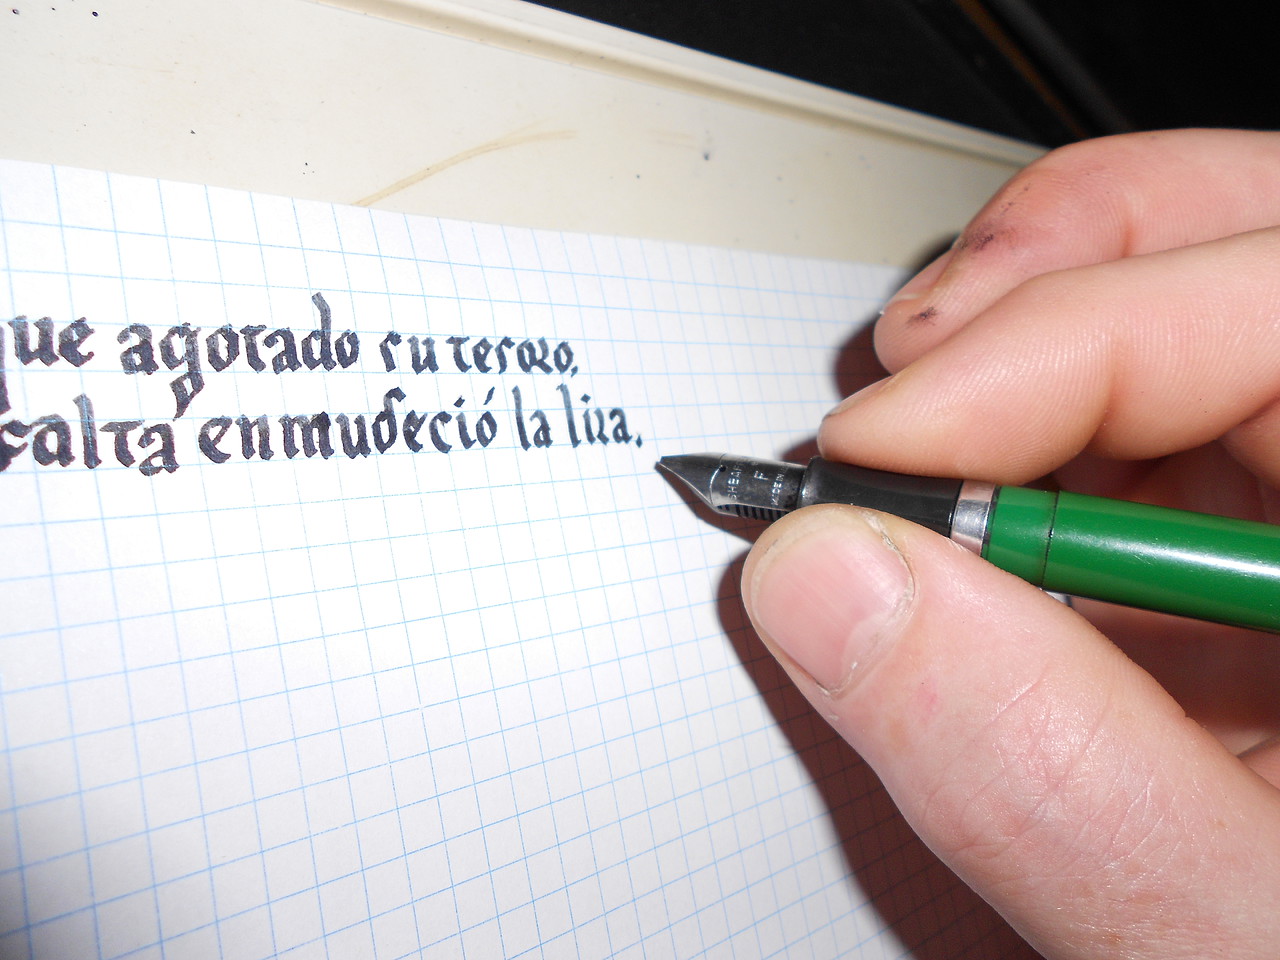 que agotado su tesoro,
falta enmudeció la lira.
SHEAF
F
MADE IN